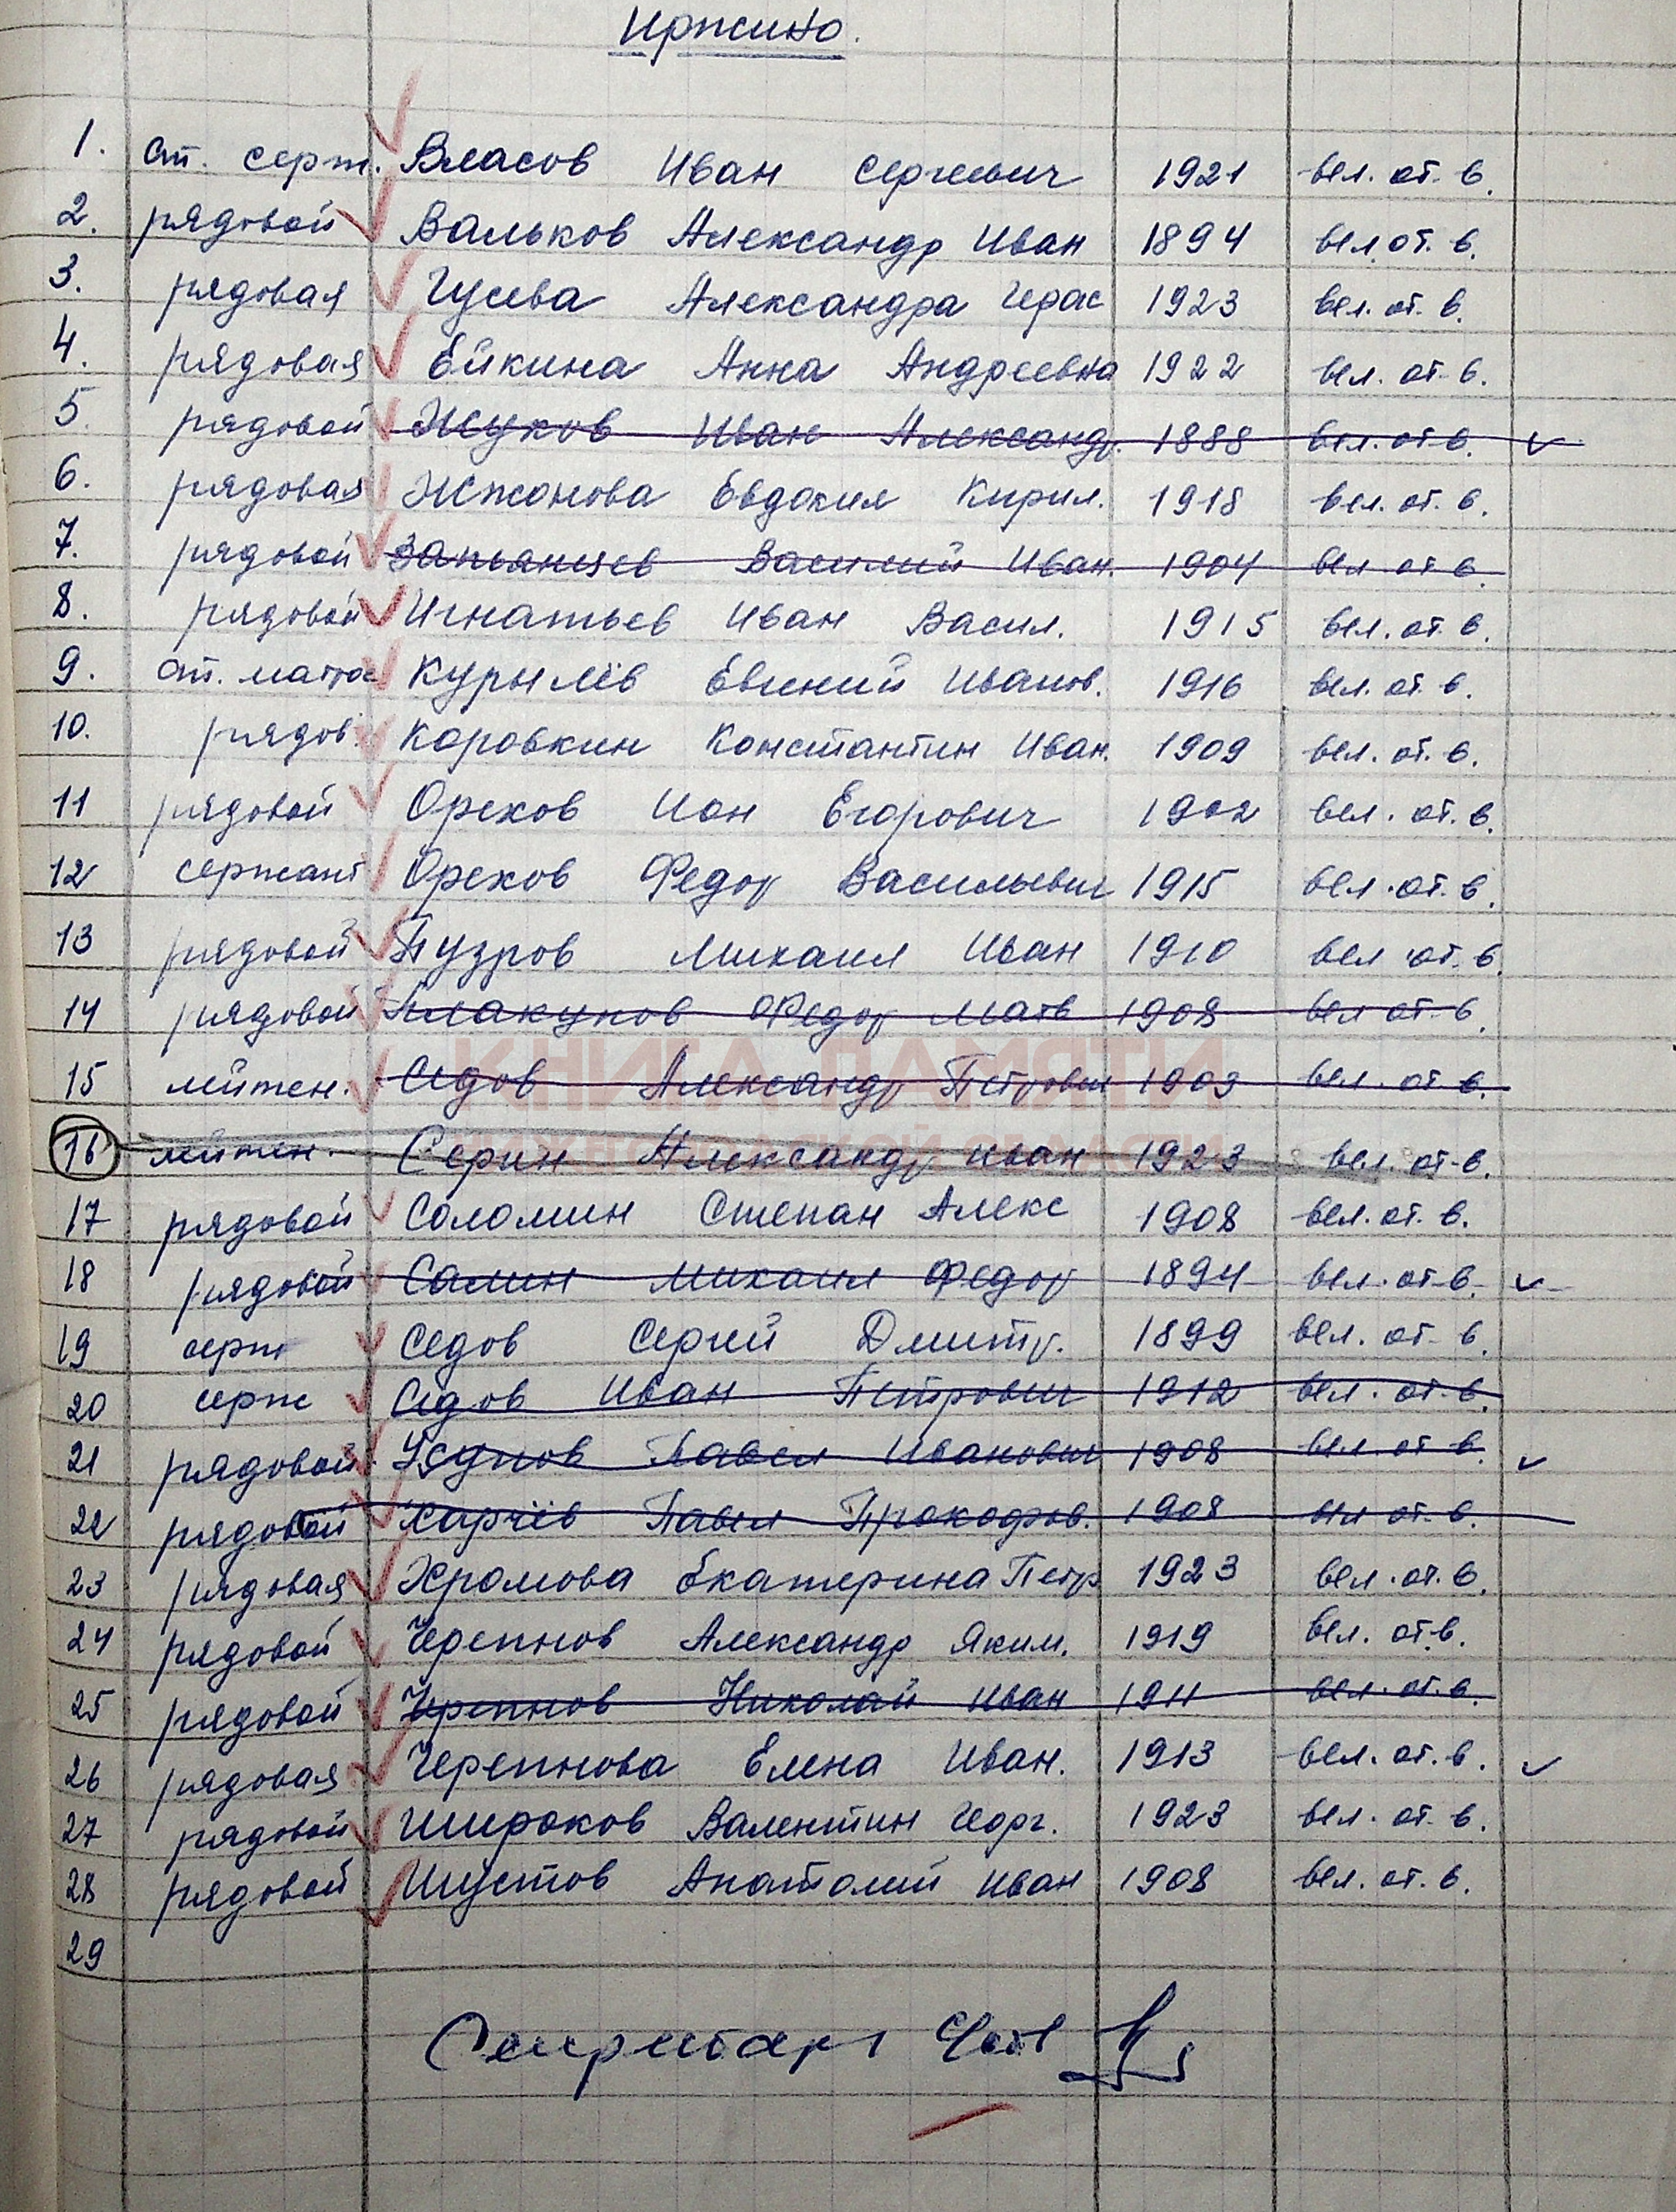 Иржино.
1. ст. серж. Власов Иван Сергеевич 1921 вел. от. в.
2. рядовой Вальков Александр Иван 1894 вел. от. в.
3. рядовая Гусева Александра Герас 1923 вел. от. в.
4. рядовая Ейкина Анна Андреевна 1922 вел. от. в.
5. рядовой Жуков Иван Александр. 1888 вел. от. в.
6. рядовая Жжонова Евдокия Кирил. 1918 вел. от. в.
7. рядовой Запьянцев Василий Иван. 1904 вел. от. в.
8. рядовой Игнатьев Иван Васил. 1915 вел. от. в.
9. ст. матрос Курылёв Евгений Иванов. 1916 вел. от. в.
10. рядов. Коровкин Константин Иван. 1909 вел. от. в.
11 рядовой Орехов Иан Егорович 1902 вел. от. в.
12 сержант Орехов Федор Васильевич 1915 вел. от. в.
13 рядовой Пузров Михаил Иван 1910 вел. от. в.
14 рядовой Плакунов Федор Матв 1908 вел. от. в.
КНИГА ПАМЯТИ
15 лейтен. Седов Александр Петрович 1903 вел. от. в.
НИЖЕГОРОДСКОЙ ОБЛАСТИ
16 лейтен. Серин Александр Иван 1923 вел. от. в.
17 рядовой Соломин Степан Алекс 1908 вел. от. в.
18 рядовой Салин Михаил Федор 1894 вел. от. в.
19 серж Седов Сергей Дмитр. 1899 вел. от. в.
20 серж Седов Иван Петрович 1912 вел. от. в.
21 рядовой Павел Иванович 1908 вел. от. в.
22 рядовой Харчёв Павел Прокофьев. 1908 вел. от. в.
23 рядовая Хромова Екатерина Петр 1923 вел. от. в.
24 рядовой Черепнов Александр Яким. 1919 вел. от. в.
25 рядовой Черепнов Николай Иван 1911 вел. от. в.
26 рядовая Черепнова Елена Иван. 1913 вел. от. в.
27 рядовой Широков Валентин Георг. 1923 вел. от. в.
28 рядовой Шустов Анатолий Иван 1908 вел. от. в.
29
Секретарь